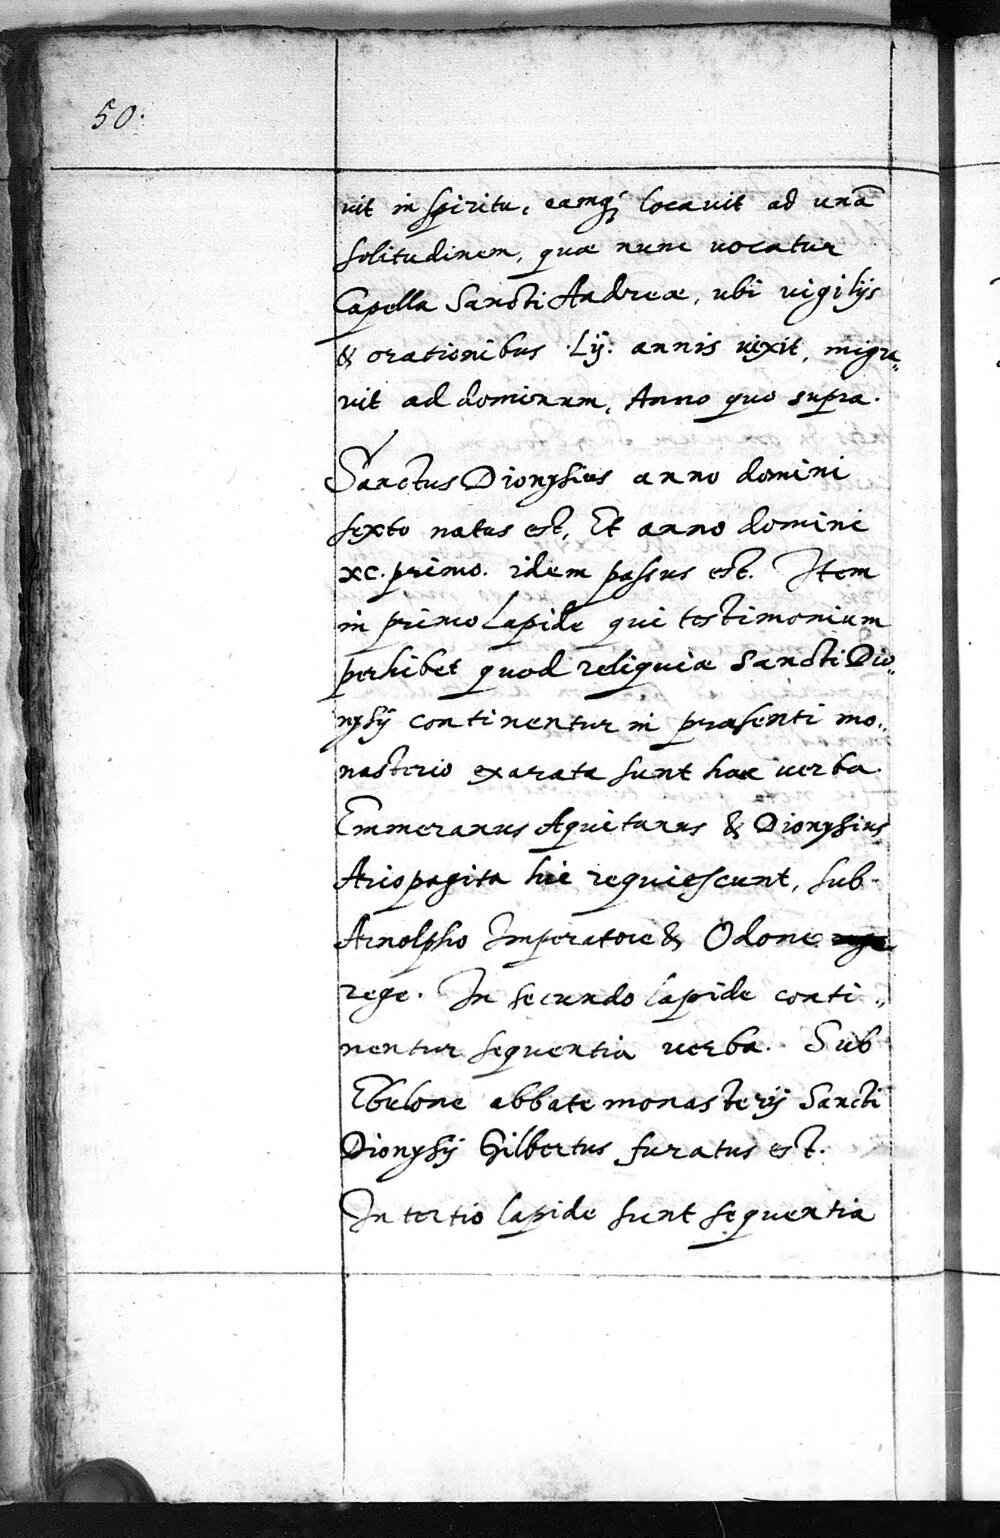 50.
vit in spiritu, eamq; locavit ad unā
solitudinem, quæ nunc vocatur
Capella Sancti Andreæ, ubi vigilijs
& orationibus .Lij: annis vixit, migra„
vit ad dominum, Anno quo supra.
Sanctus Dionysius anno domini
sexto natus est, Et anno domini
xc. primo. idem passus est. Item
in primo lapide qui testimonium
perhibet quod reliquiæ Sancti Dio„
nysij continentur in præsenti mo„
nasterio exarata sunt hæc verba.
Emmeranus Aquitanus & Dionysius
Ariopagita hic requiescunt, sub
Arnolpho Imperatore & Odone
rege. In secundo lapide conti„
nentur sequentia verba. Sub
Ebulone abbate monasterij Sancti
Dionysij Gilbertus furatus est.
In tertio lapide sunt sequentia